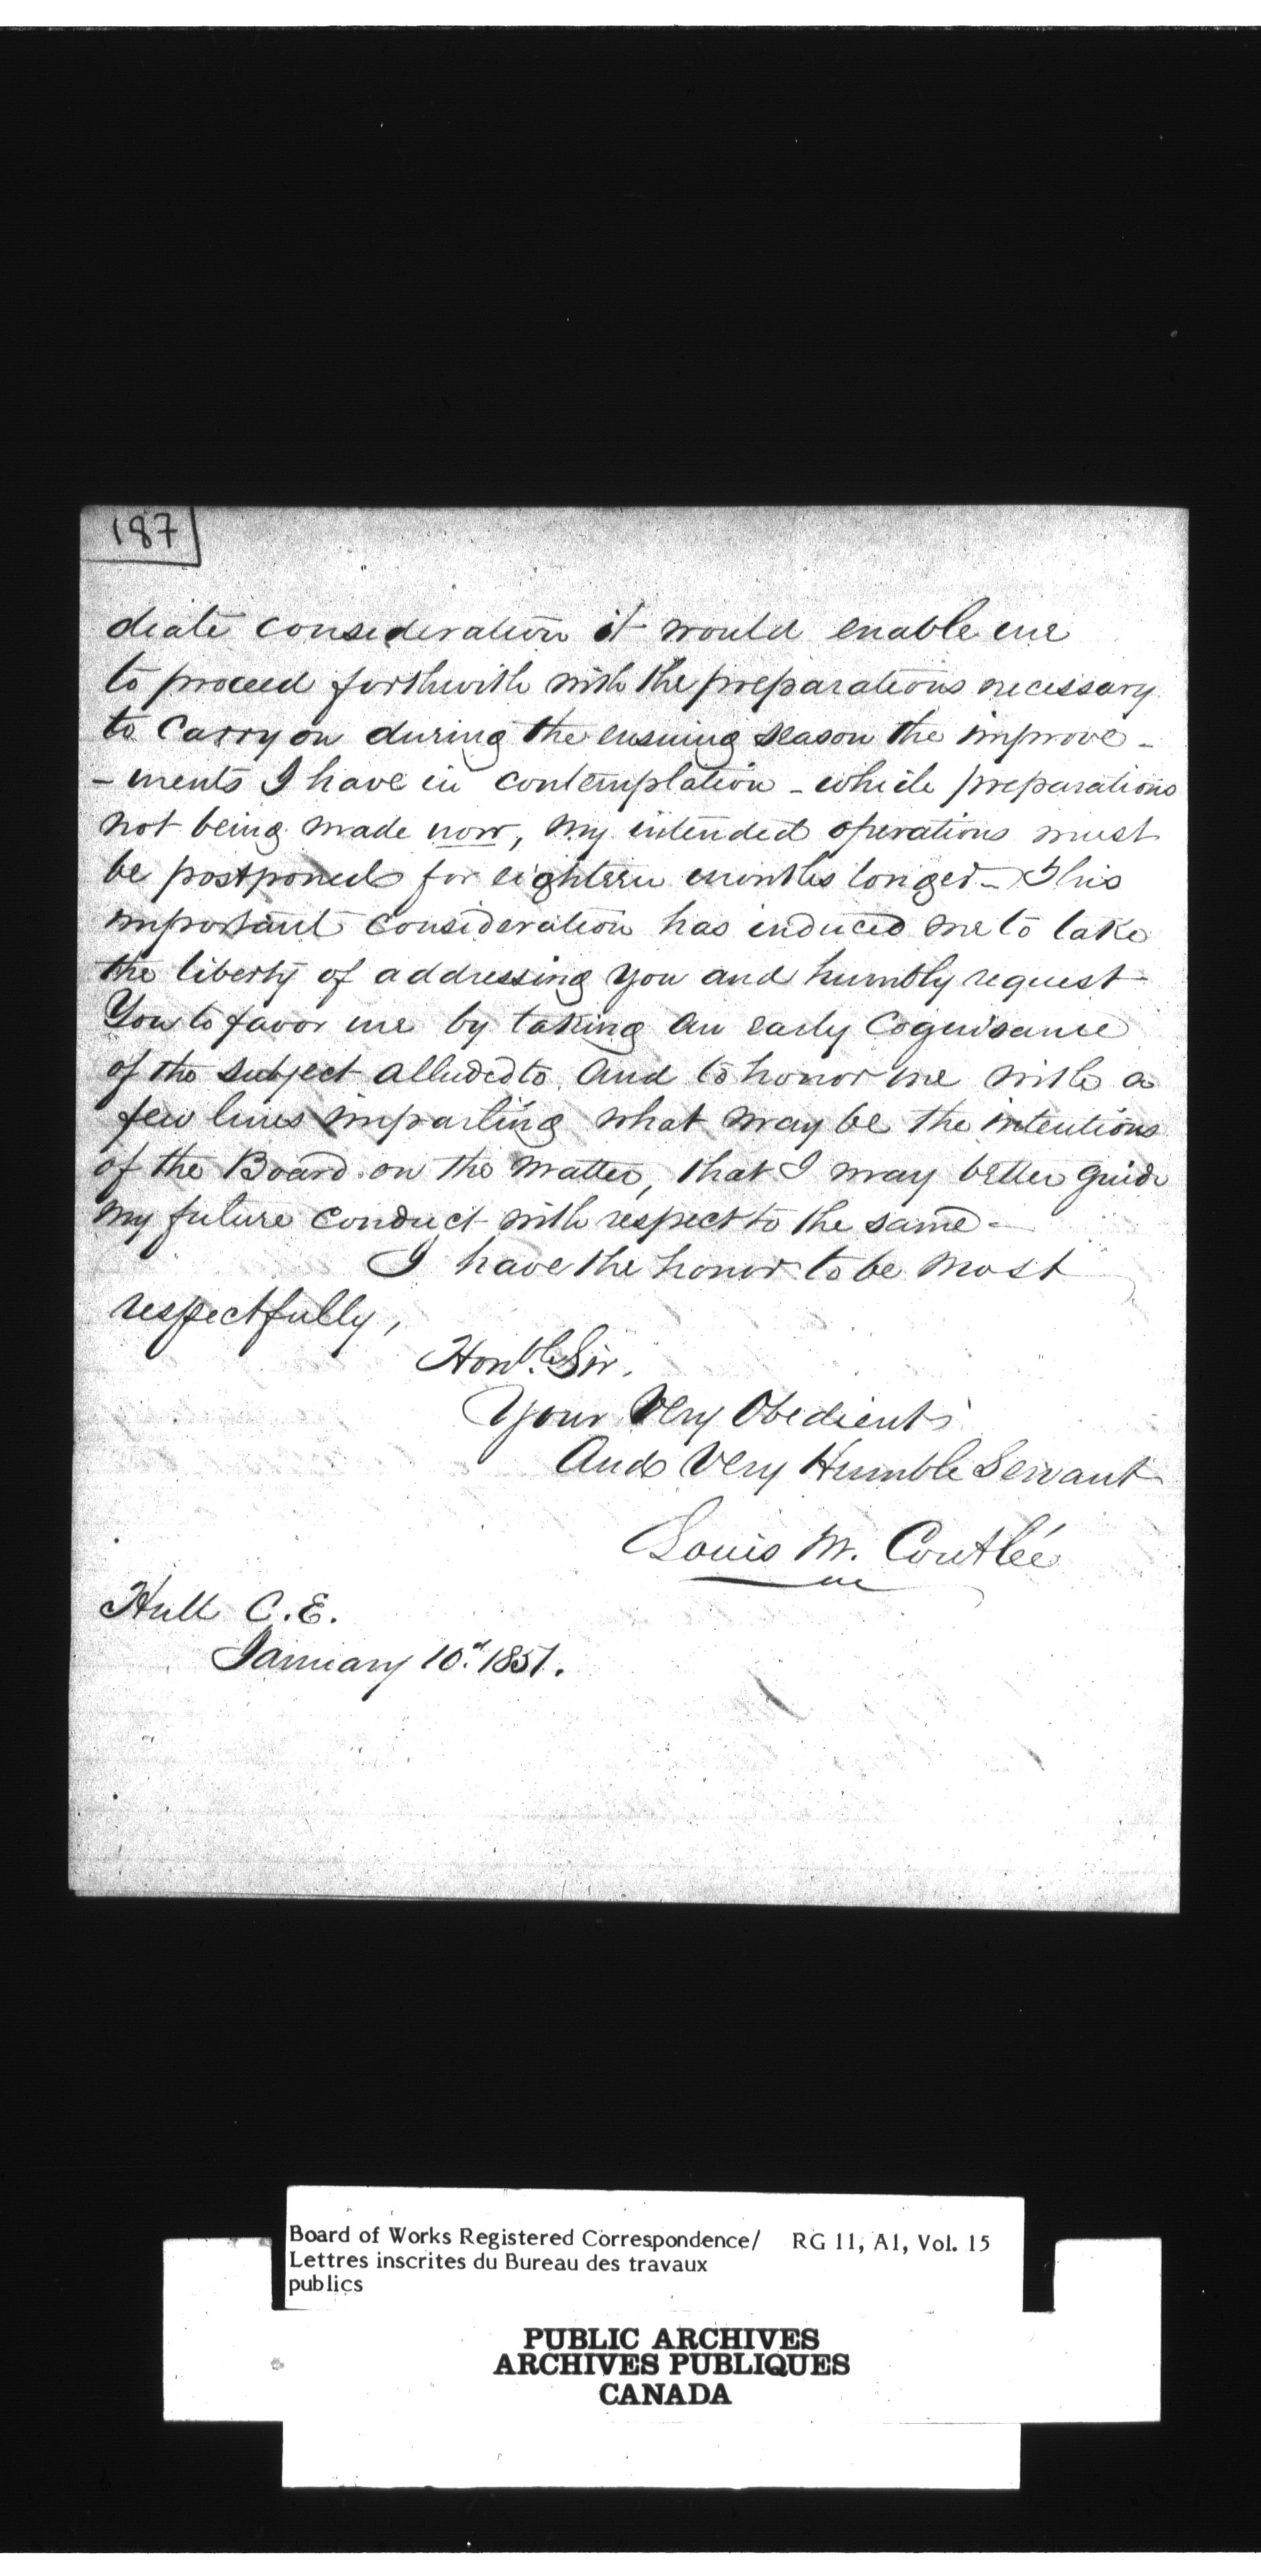 187
diate consideration it would enable me
to proceed forthwith with the preparations necessary
to Carry on during the ensuing season the improve -
- ments I have in contemplation - which preparations
not being made now, my intended operations must
be postponed for eighteen months longer - This
important consideration has induced me to take
the liberty of addressing you and humbly request
You to favor me by taking an early Cognisance
of the subject alluded to and to honor me with a
few lines imparting what may be the intentions
of the Board on the matter, that I may better guide
my future conduct with respect to the same -
I have the honor to be most
respectfully,
Honble Sir.
Your Very Obedient
And Very Humble Servant
Louis M. Coutlée
Hull C.E.
January 10.d 1851.
Board of Works Registered Correspondence/ RG 11, A1, Vol. 15
Lettres inscrites du Bureau des travaux
publics
PUBLIC ARCHIVES
ARCHIVES PUBLIQUES
CANADA